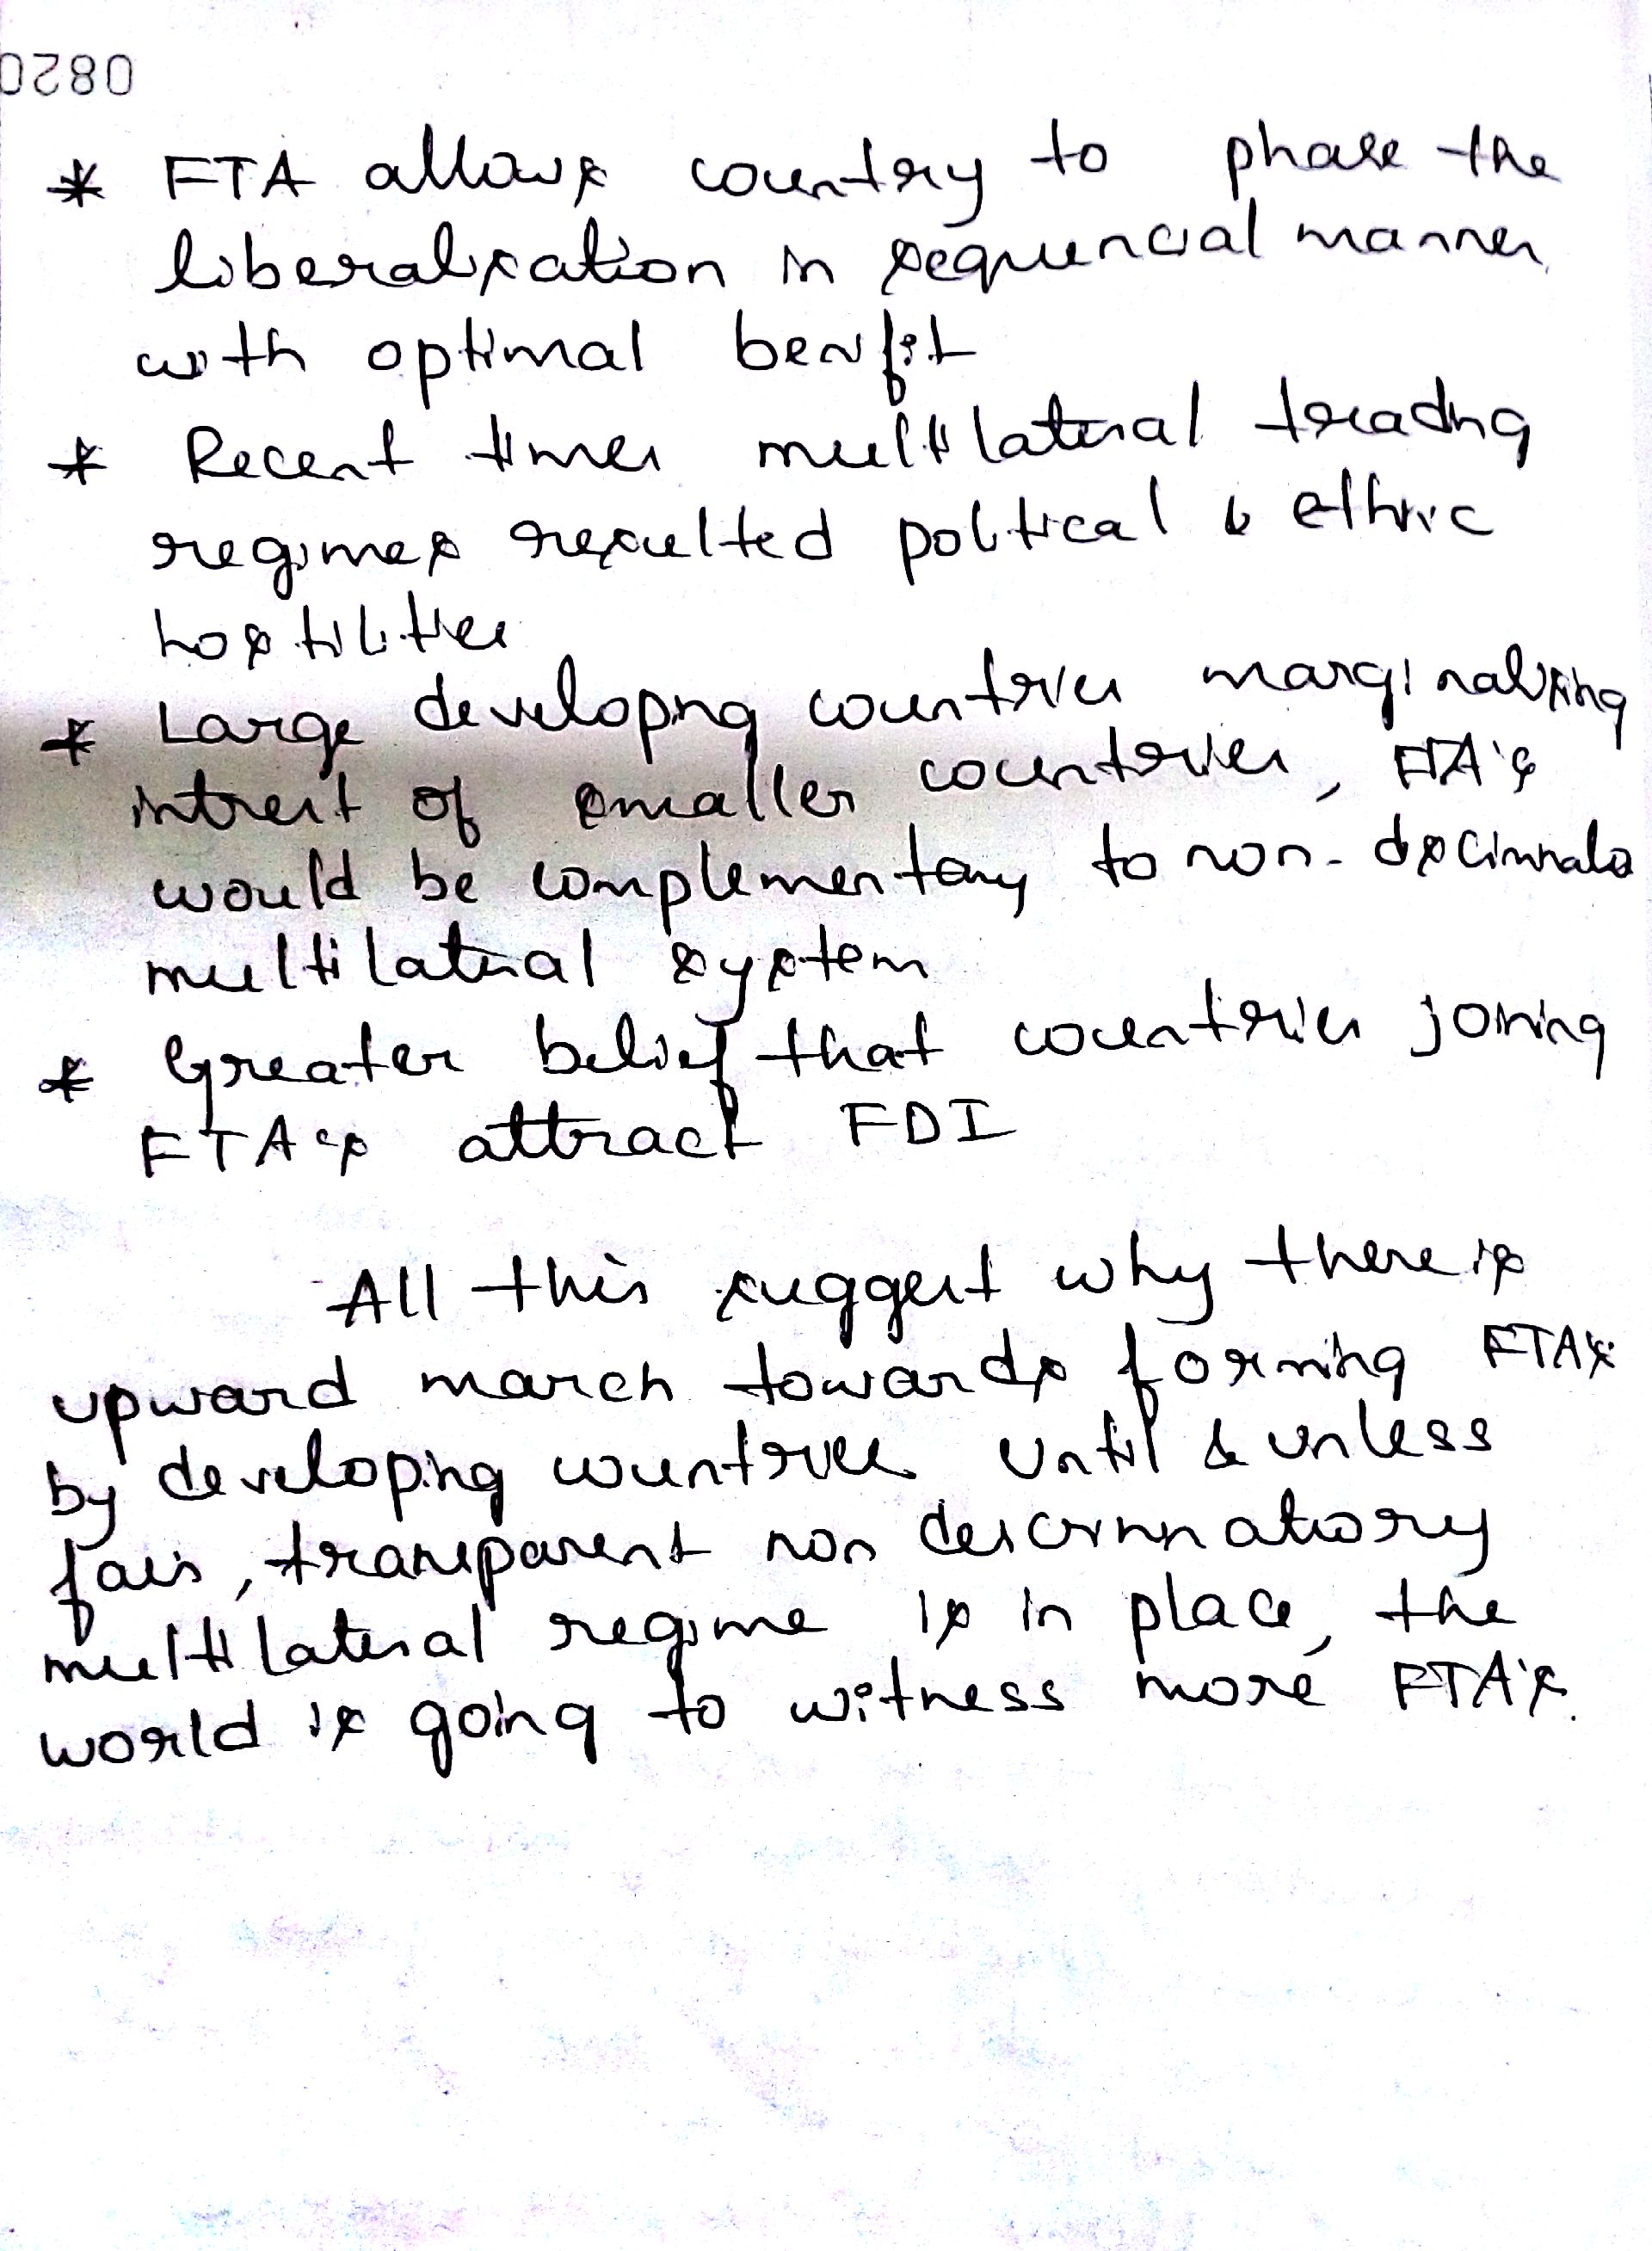 0820
* FTA allows country to phase the
liberalisation in sequencial manner
with optimal benfit
* Recent times multilateral trading
regimes resulted political & ethnic
hostilities
* Large developing countries marginalising
intrest of smaller countries, FTA's
would be complementary to non-
multilateral system
* Greater belief that countries joining
FTA's attract FDI
All this suggest why there is
upward march towards forming FTA's
by developing countries until & unless
fair, transparent non descrimnatiory
multilateral regime is in place, the
world is going to witness more FTA's.